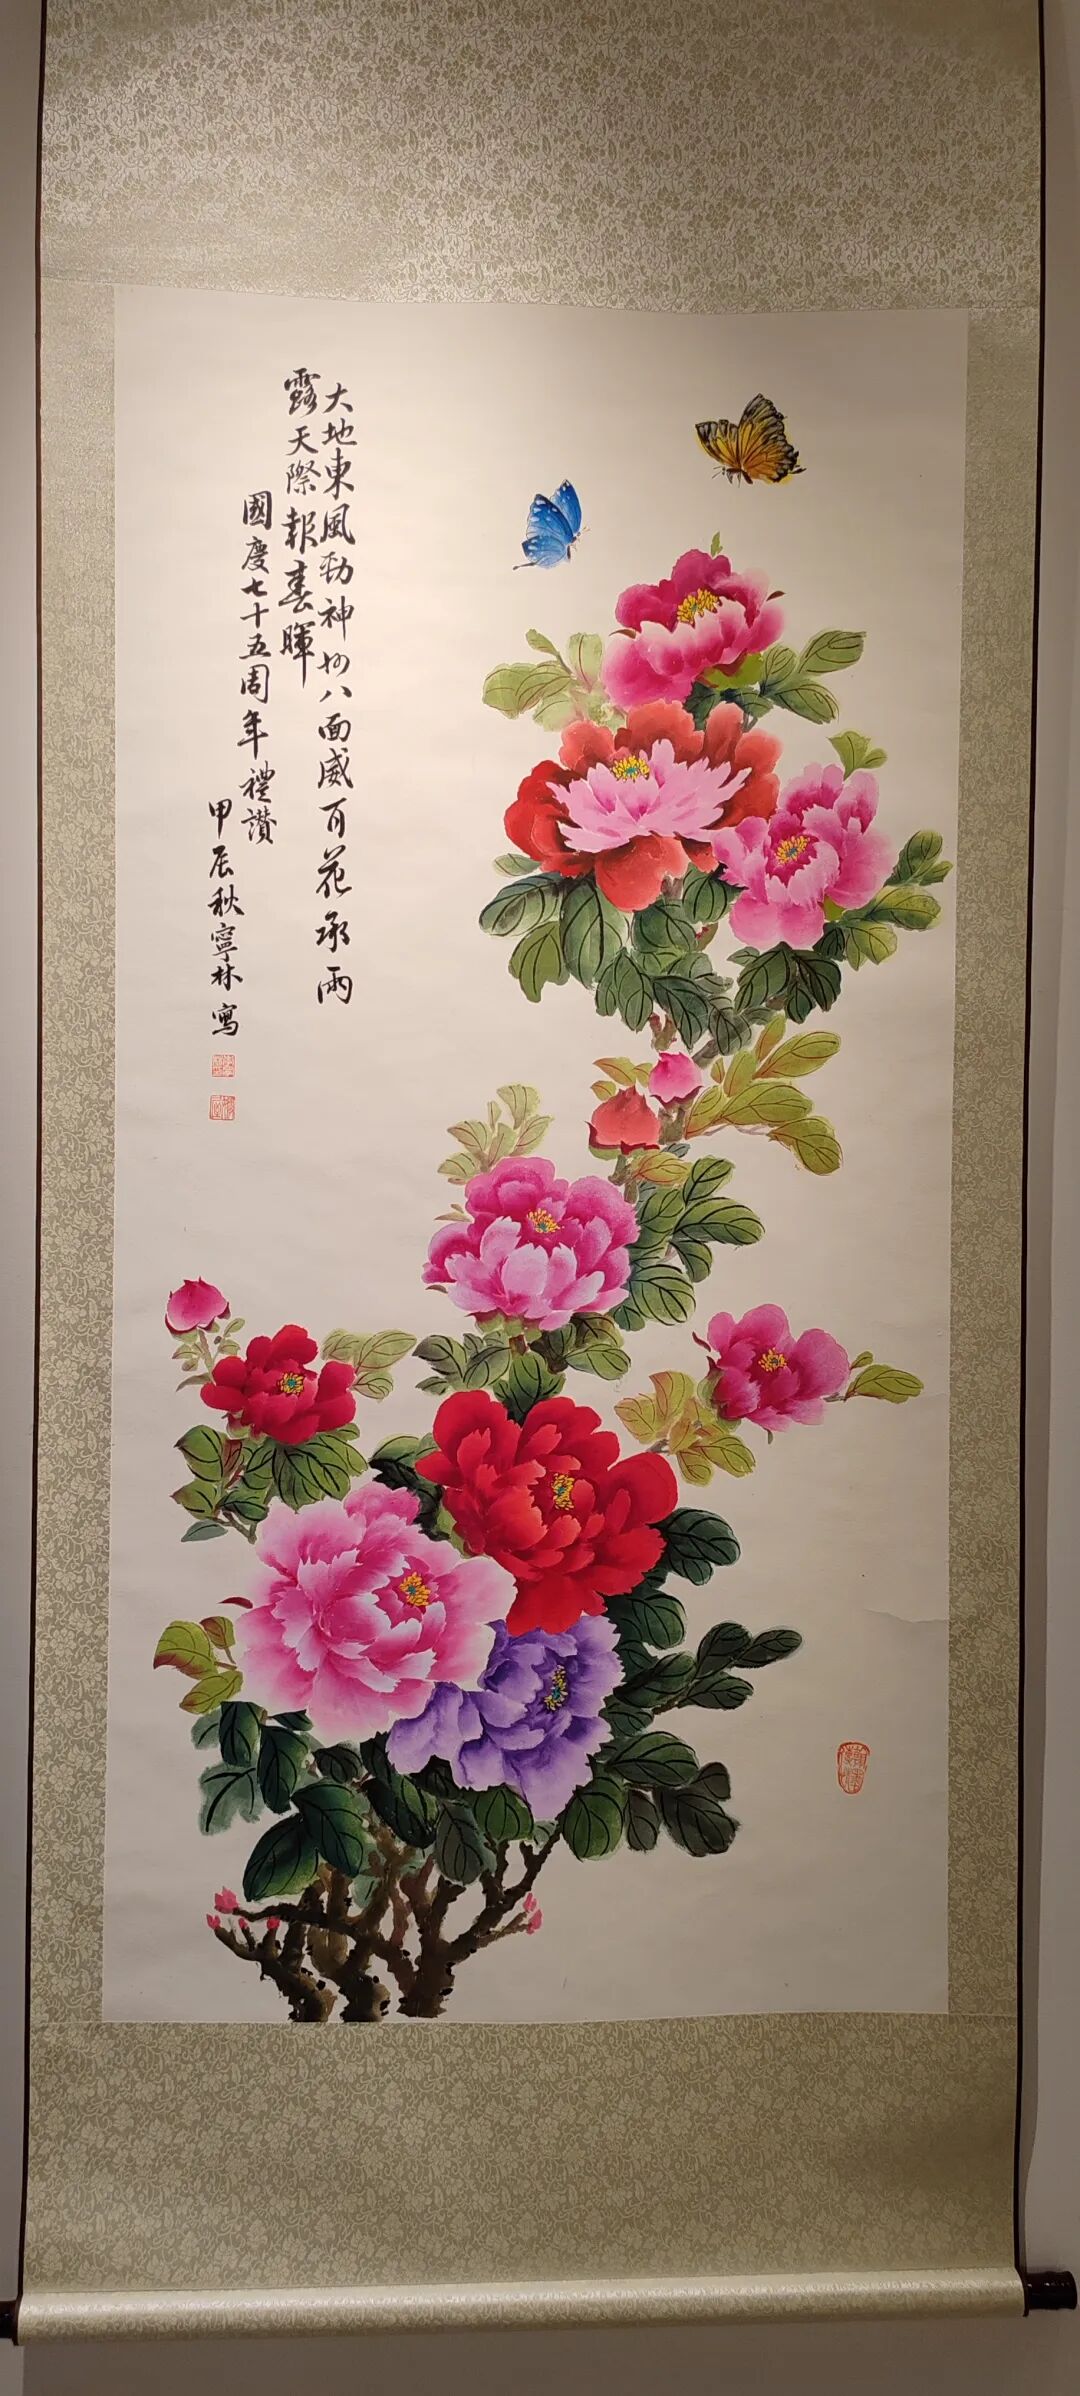 大地東風勁神州八面威百花承雨
露天際報春暉
國慶七十五周年禮讚
甲辰秋寧林寫